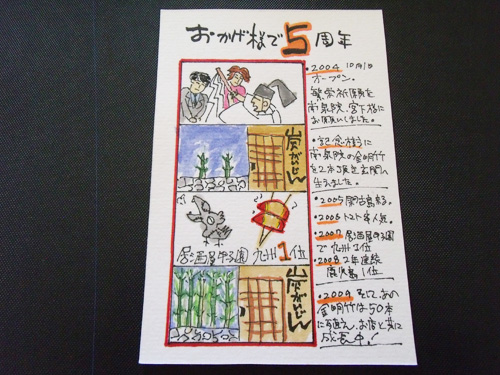 おかげ様で5周年
・2004 10月1日
オープン。
繁栄祈願を
南泉院、宮下様に
お願いしました。
・記念樹に
南泉院の金明竹
を2本頂き玄関へ
生えました。
・2005
・2006 トマト串人気。
・2007 居酒屋甲子園
で九州1位
・2008 2年連続
鹿児島1位
・2009 そして、あの
金明竹は50本
に増え、お店と共に
成長中!
居酒屋甲子園 九州1位